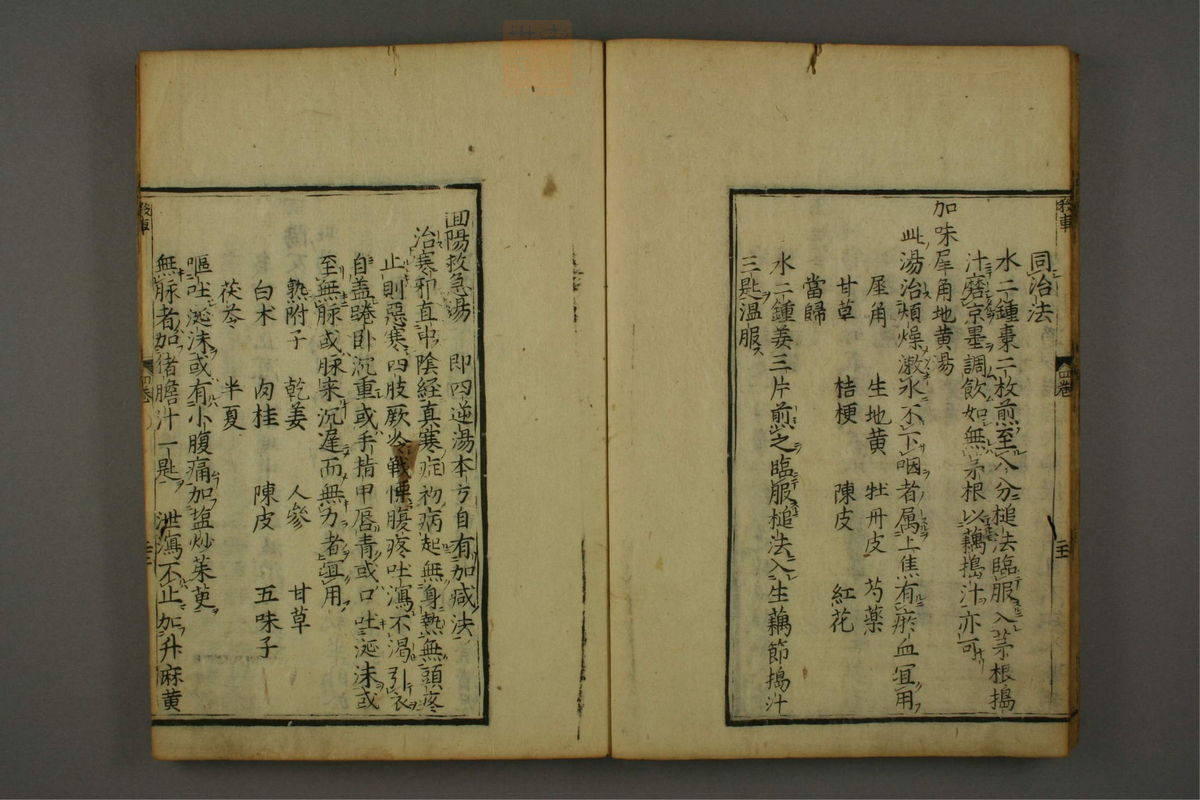 同治法
水二鍾棗二枚煎至八分槌法臨服入茅根搗
汁磨京墨調飲如無茅根以藕搗汁亦可
加味犀角地黄湯
此湯治煩燥漱水不下咽者属上焦有瘀血宜用
犀角 生地黄 牡丹皮 芍藥
甘草 桔梗 陳皮 紅花
當歸
水二鍾姜三片煎之臨服槌法入生藕節搗汁
三匙温服
四卷
回陽救急湯 即四逆湯本方自有加减法
治寒邪直中陰経真寒症初病起無身熱無頭疼
止則惡寒四肢厥冷戦慄腹疼吐瀉不渴引衣
自盖踡卧沉重或手指甲唇青或口吐涎沫或
至無脉或脉来沉遅而無力者宜用
熟附子 乾姜 人參 甘草
白朮 肉桂 陳皮 五味子
茯苓 半夏
嘔吐涎沫或有小腹痛加塩炒茱萸
無脉者加猪膽汁一匙 泄瀉不止加升麻黄